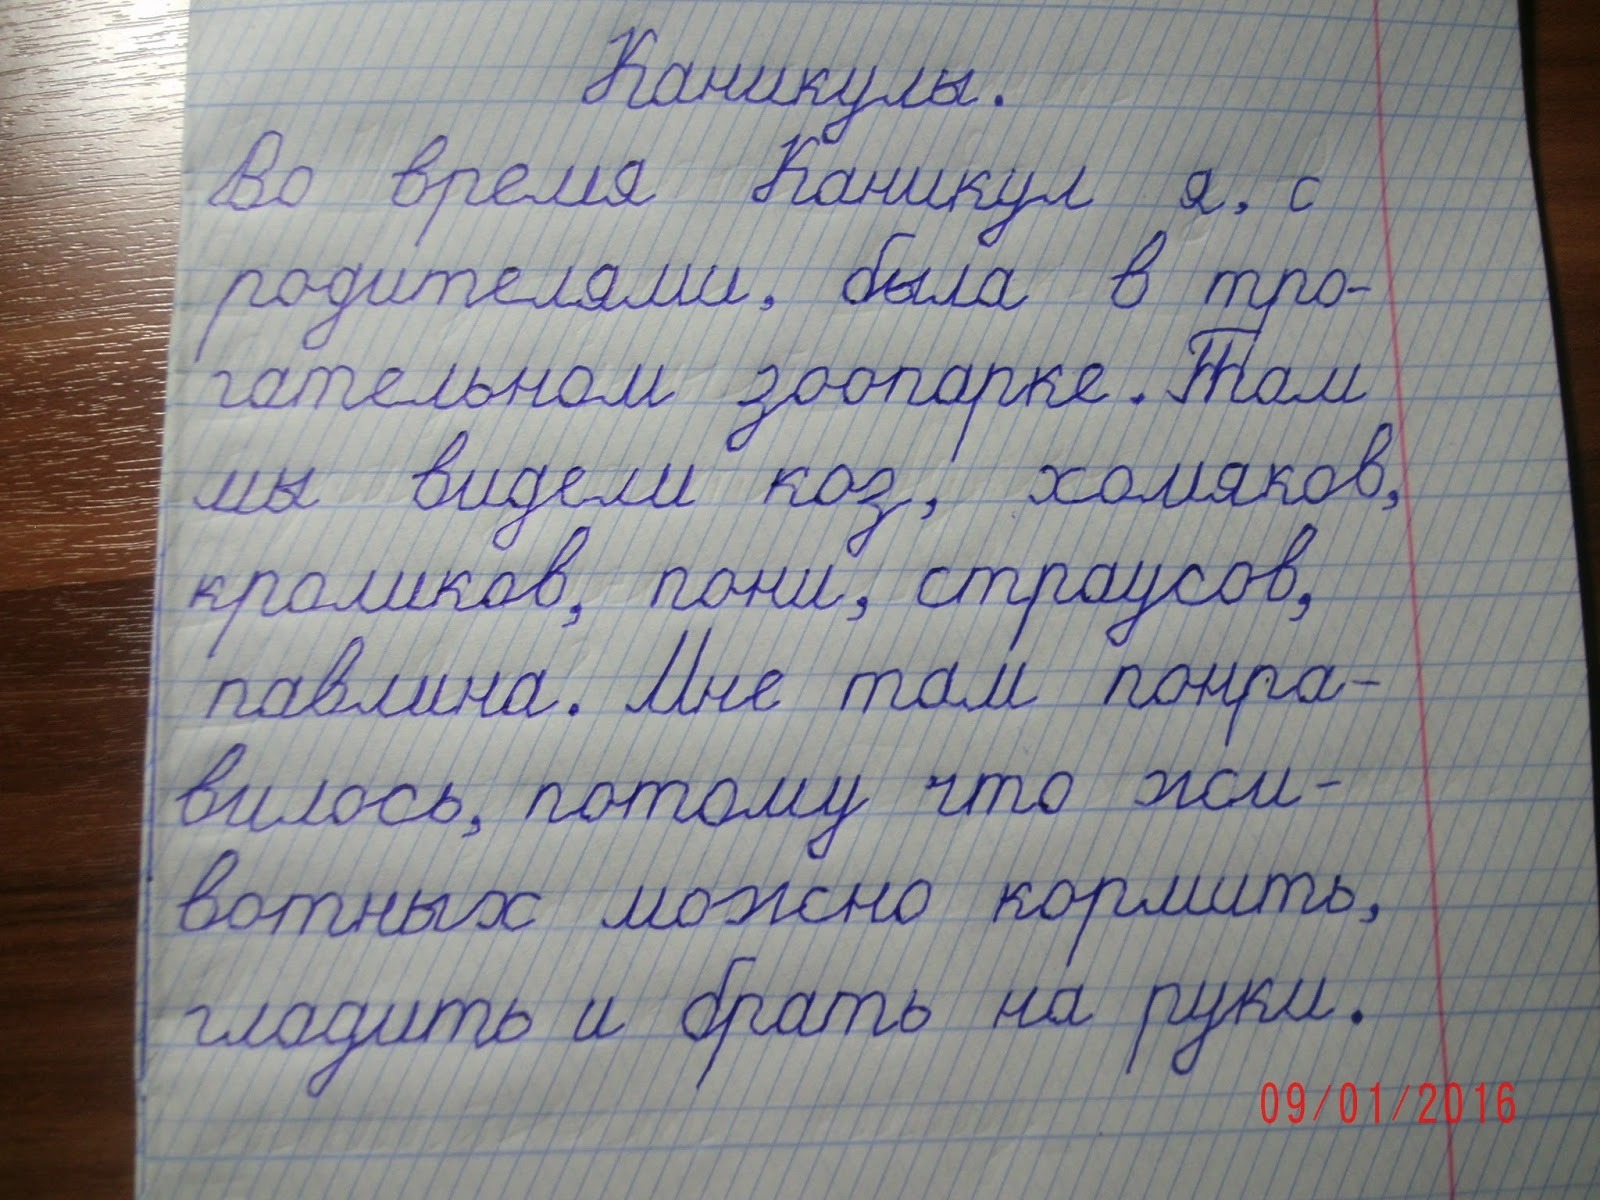 Каникулы.
Во время Каникул я, с
родителями, была в тро-
гательном зоопарке. Там
мы видели коз, хомяков,
кроликов, пони, страусов,
павлина. Мне там понра-
вилось, потому что жи-
вотных можно кормить,
гладить и брать на руки.
09/01/2016